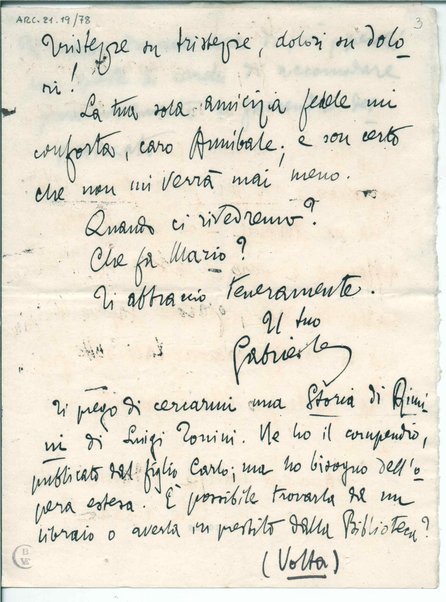 ARC. 21. 19/78
3
Tristezze su tristezze, dolori su dolo
ri!
La tua sola amicizia fedele mi
conforta, caro Annibale; e son certo
che non mi verrà mai meno.
Quando ci rivedremo?
Che fa Mario?
Ti abbraccio teneramente.
Il tuo
Gabriele
Ti prego di cercarmi una Storia di Rimi
ni di Luigi Tonini. Ne ho il compendio,
pubblicato dal figlio Carlo; ma ho bisogno dell'o
pera estesa. È possibile trovarla da un
libraio o averla in prestito dalla Biblioteca?
(Volta)